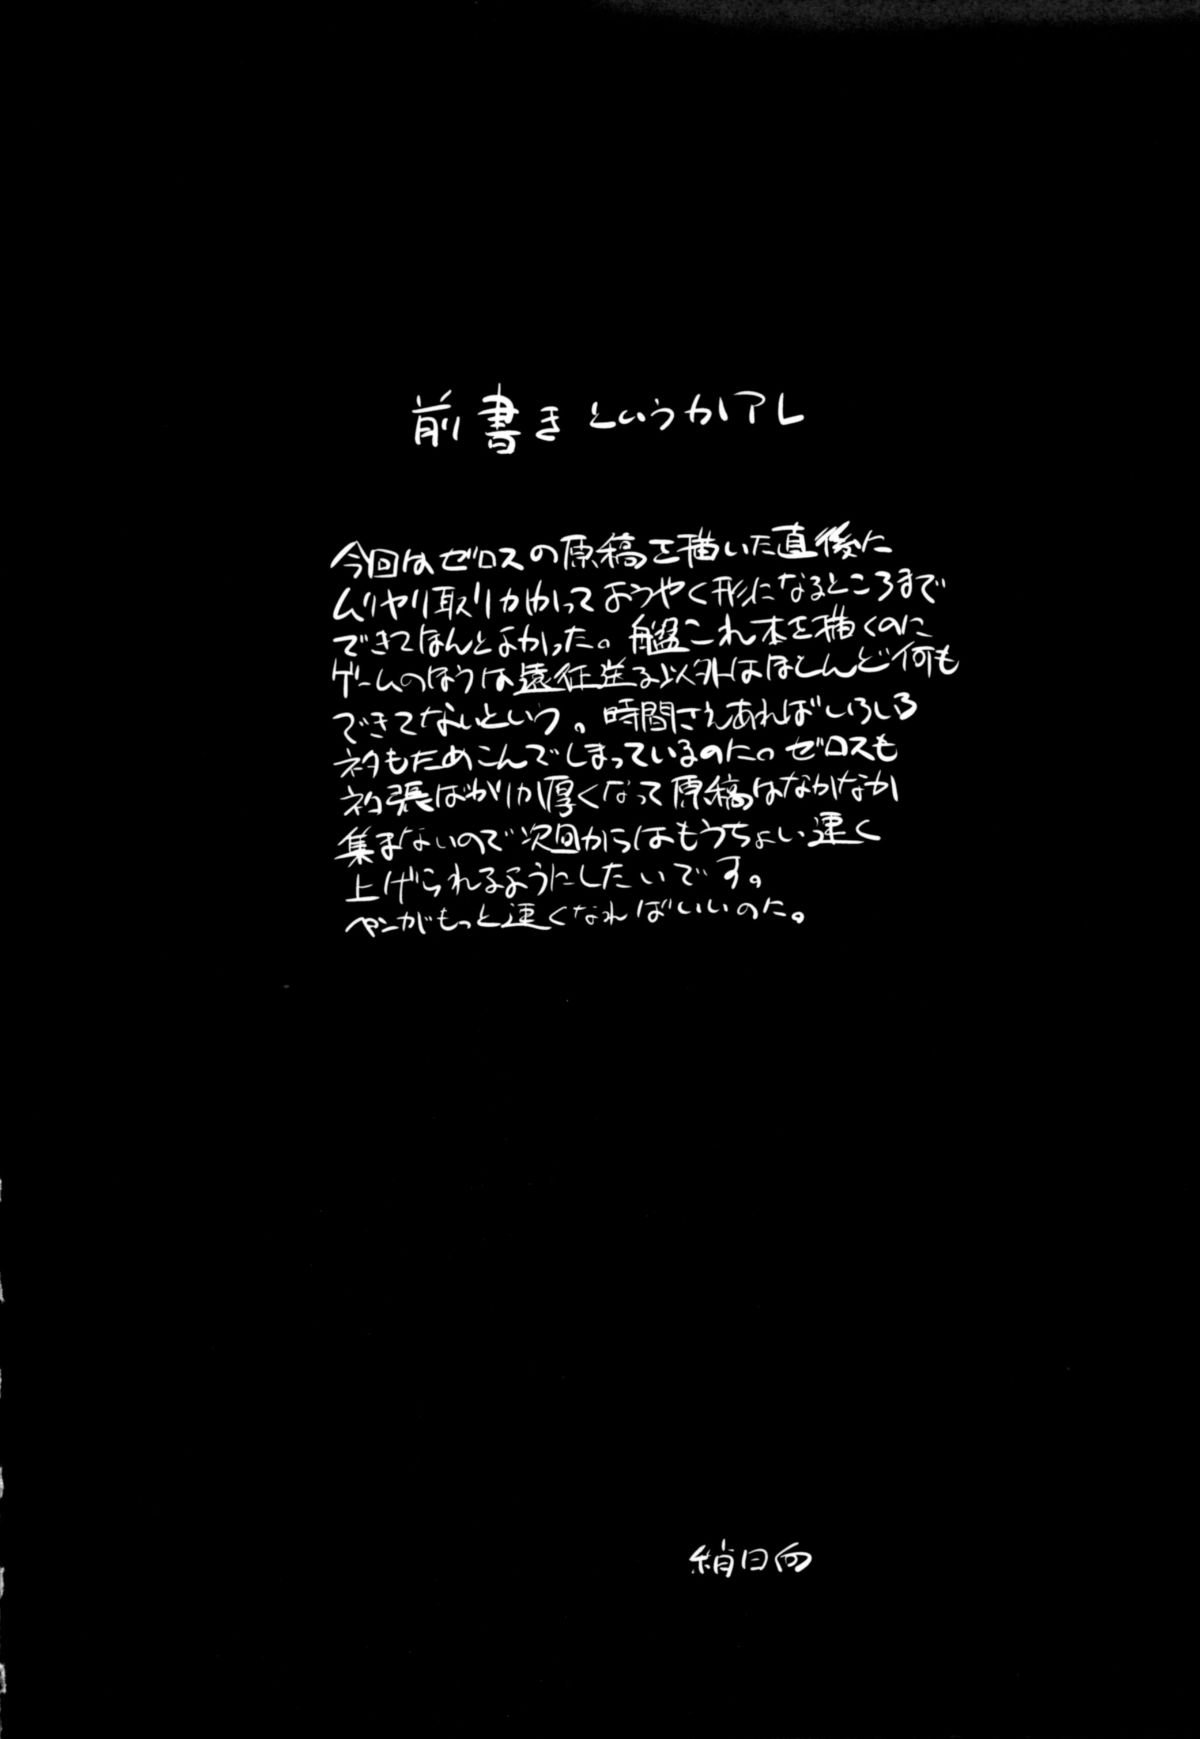 前書きというかアレ
今回はゼロスの原稿を描いた直後に
ムリヤリ取りかかってようやく形になるところまで
できてほんとよかった。艦これ本を描くのに
ゲームのほうは遠征送る以外はほとんど何も
できてないという。時間さえあればいろいろ
ネタもためこんでしまっているのに。ゼロスも
ネタ帳ばかりが厚くなって原稿はなかなか
集まらないので次回からはもうちょい速く
上げられるようにしたいです。
ペンがもっと速くなればいいのに。
綃日向